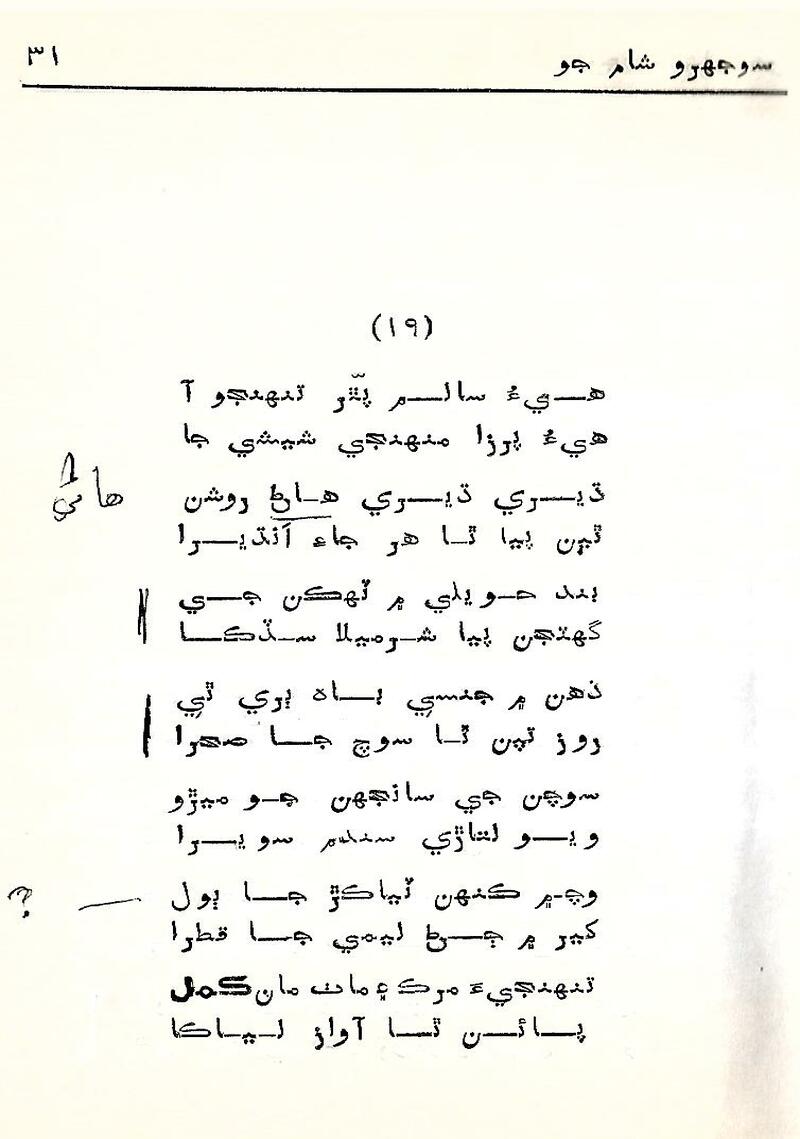 سوجهرو شام جو
٣١
(١٩)
هيءُ سالم پٿر تنهنجو آ
هيءُ پرزا منهنجي شيشي جا
ڌيري ڌيري هاڻ روشن
هاڻي
ٿين پيا ٿا هر جاءِ اَنڌيرا
بند حويلي ۾ ٽهڪن جي
گهٽجن پيا شرميلا سڏڪا
ذهن ۾ جنسي باهه ٻري ٿي
روز تپن ٿا سوچ جا صحرا
سوچن جي سانجهن جو ميڙو
ويو لتاڙي سندم سويرا
وچ ۾ ڪنهن ٽياڪڙ جا ٻول
؟
کير ۾ ڄڻ ليمي جا قطرا
تنهنجيءَ مرڪ ۽ مات مان ڪمل
پائن ٿا آواز لياڪا